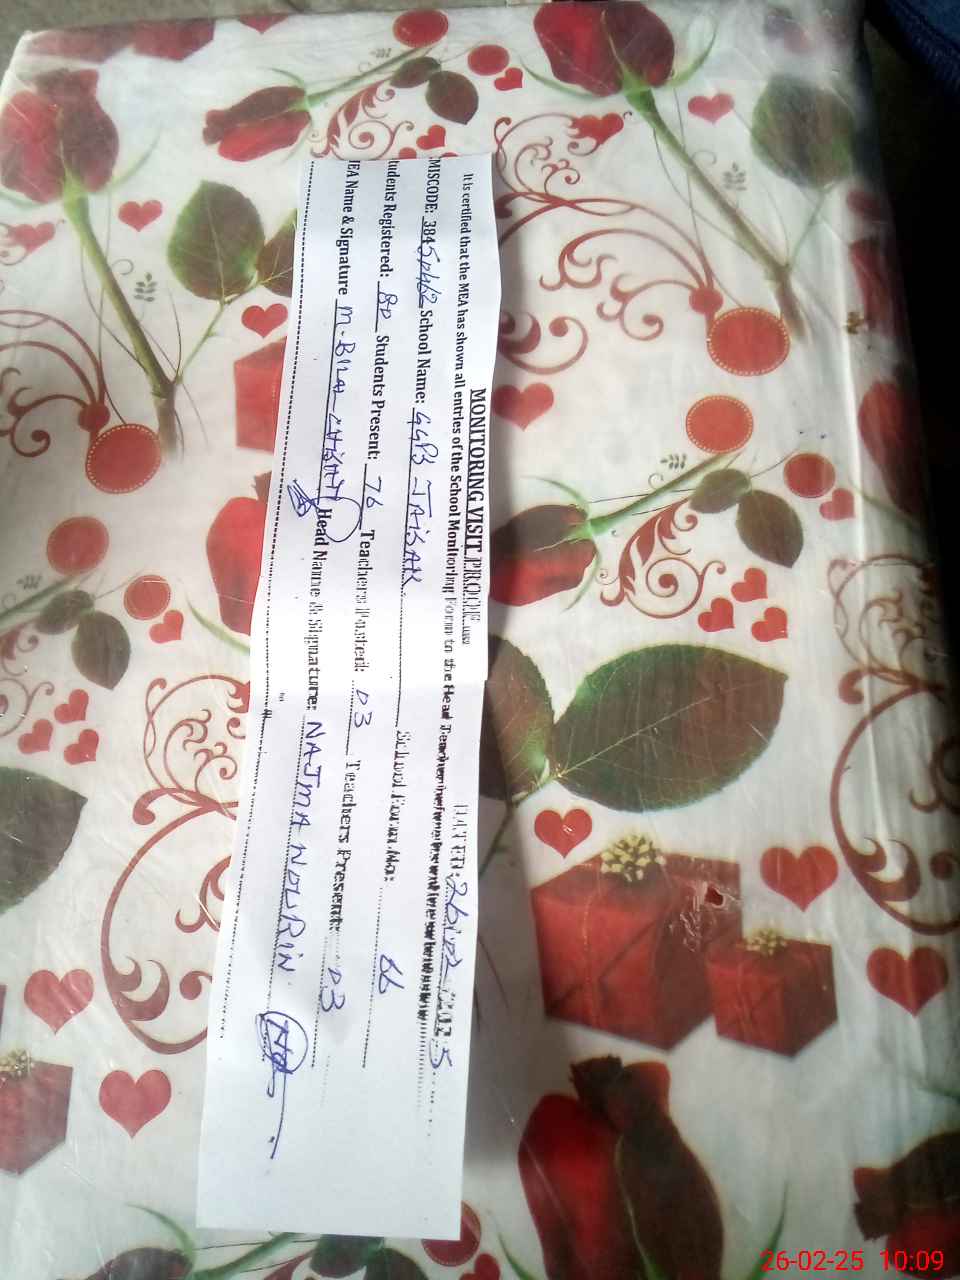 MONITORING VISIT PROOF
DATED: 26-02-2025
It is certified that the MEA has shown all entries of the School Monitoring Form to the Head Teacher
EMISCODE: 3845 School Name: GGPS School Form No: 66
Students Registered: 80 Students Present: 76 Teachers Posted: 03 Teachers Present: 03
MEA Name & Signature M. BILAL Head Name & Signature: NAJMA NOURIN
26-02-25 10:09